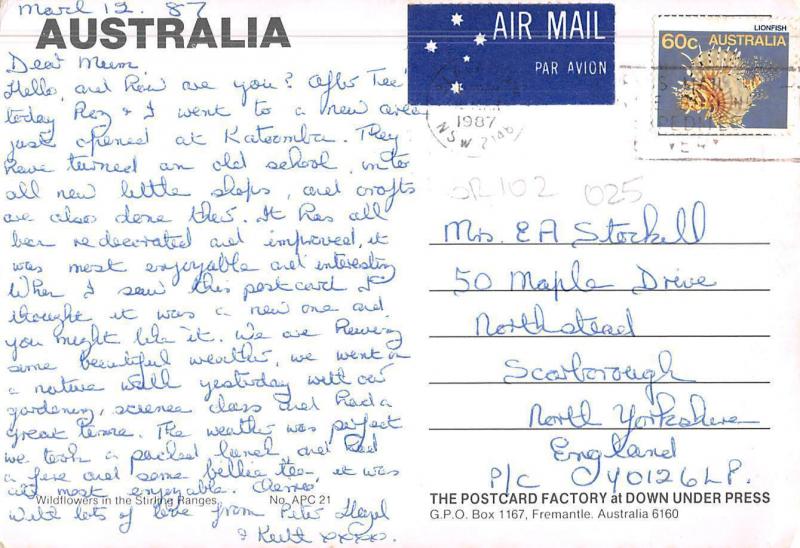 March 12. 87
AUSTRALIA
Dear Mum
Hello, and how are you? After Tee
today Reg & I went to a new area
just opened at Katoomba. They
have turned an old school, into
all new little shops, and crafts
are also done ther. It has all
ben redecorated and improved, it
was most enjoyable and interesting
When I saw this postcard I
thought it was a new one and
you might like it. We are having
some beautiful weather, we went on
a nature walk yesterday with our
gardening, science class and had a
great time. The weather was perfect
we took a packed lunch and had
a fire and some billie tea, it was
all most enjoyable. Cheerio
With lots of love from Peter Hazel
& Keith xxxxo.
Wildflowers in the Stirling Ranges. No. APC 21
AIR MAIL
PAR AVION
LIONFISH
60c AUSTRALIA
1987
NSW
OR102 025
Mrs. E A Stockell
50 Maple Drive
Northstead
Scarborough
North Yorkshire
England
P/C YO126LP.
THE POSTCARD FACTORY at DOWN UNDER PRESS
G.P.O. Box 1167, Fremantle. Australia 6160